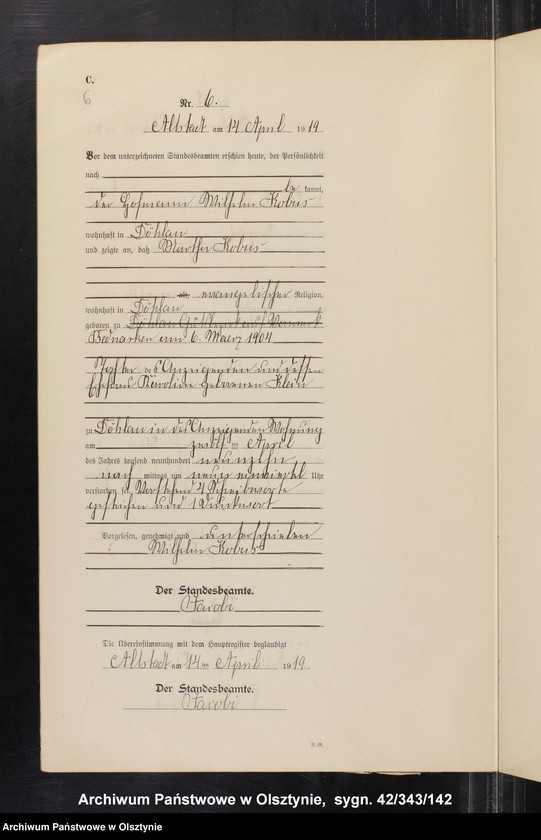 C.
6
Nr. 6.
Altstadt am 14 April 1919
Vor dem unterzeichneten Standesbeamten erschien heute, der Persönlichkeit
nach
be kannt,
der Hofmann Wilhelm Kobus
wohnhaft in Döhlau
und zeigte an, daß Martha Kobus
alt, evangelischer Religion,
wohnhaft in Döhlau
geboren zu Döhlau
Bednarken am 6. Maerz 1904
Tochter des Anzeigenden und dessen
Ehefrau Karoline geborenen Klein
zu Döhlau in des Anzeigenden Wohnung
am zwölf ten April
des Jahres tausend neunhundert neunzehn
nach mittags um neun einviertel Uhr
verstorben sei. Vorstehend 4 Schreibworte
gestrichen und 1 Druckwort
Vorgelesen, genehmigt und unterschrieben
Wilhelm Kobus
Der Standesbeamte.
Jacobi
Die Übereinstimmung mit dem Hauptregister beglaubigt
Altstadt am 14 ten April 1919.
Der Standesbeamte.
Jacobi
Archiwum Państwowe w Olsztynie, sygn. 42/343/142
Archiwum Państwowe w Olsztynie